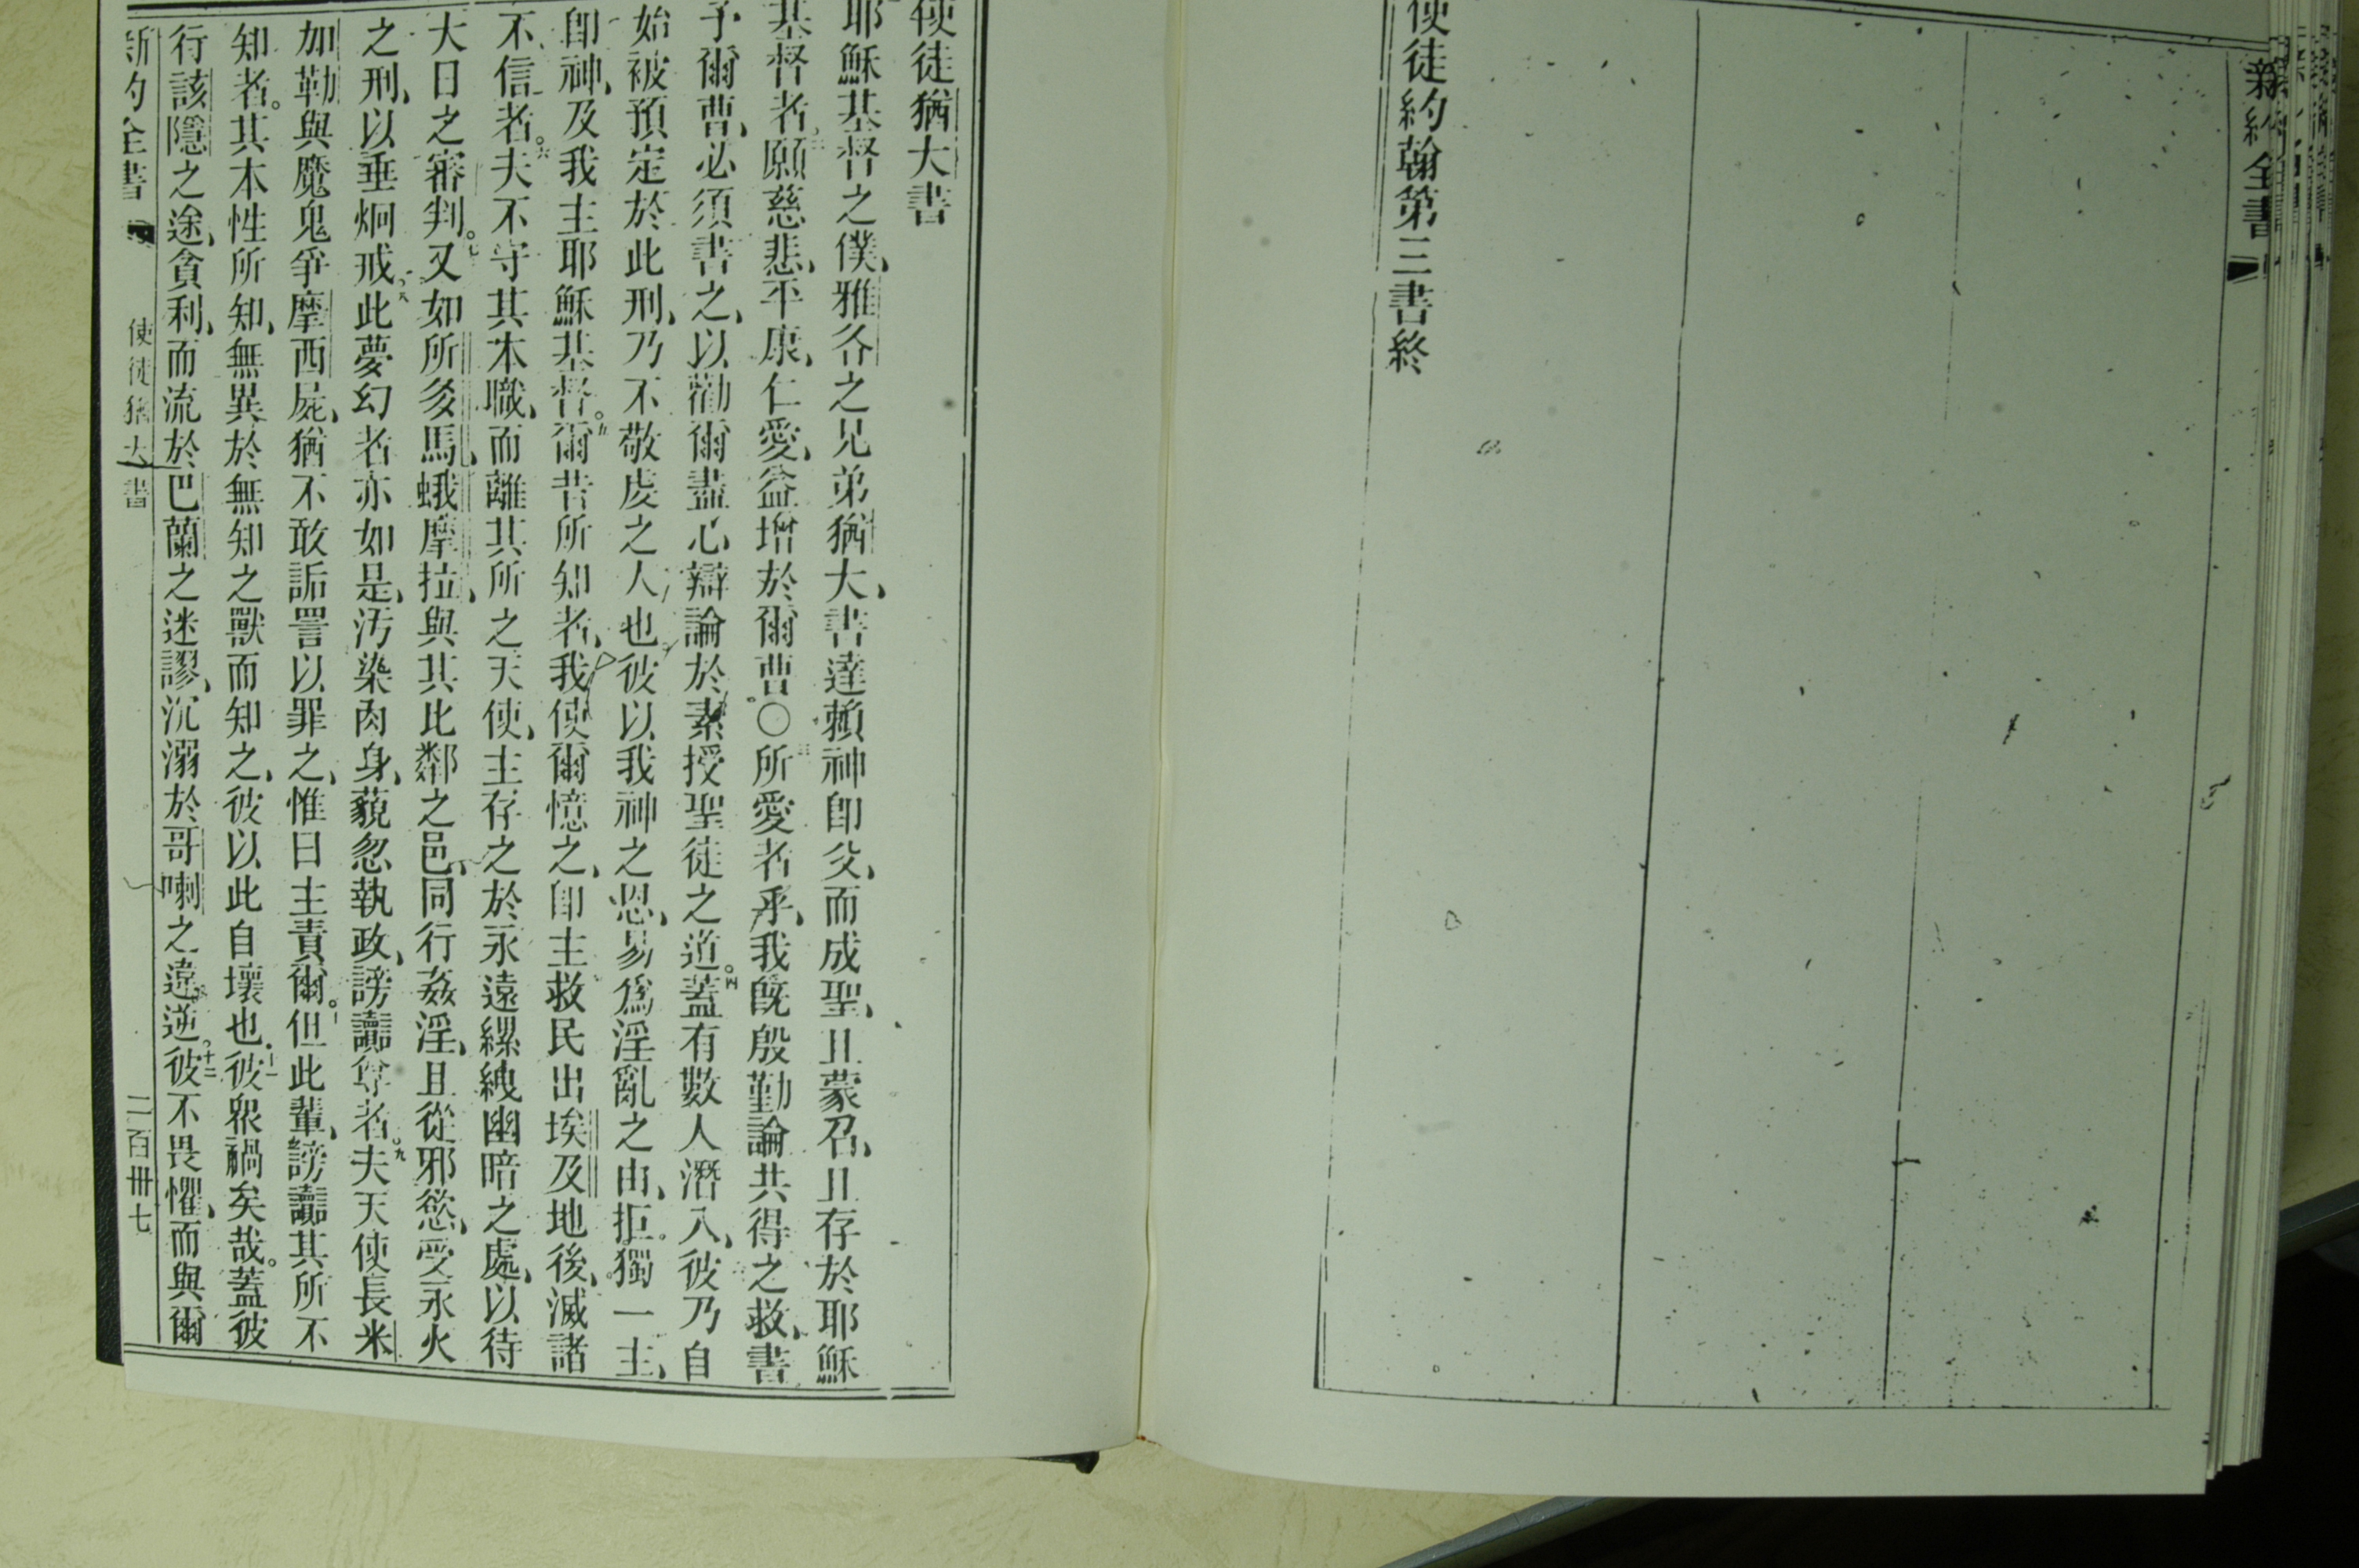 新約全書
使徒約翰第三書終
使徒猶大書
耶穌基督之僕、雅各之兄弟猶大、書達賴神卽父、而成聖、且蒙召、且存於耶穌
基督者、願慈悲、平康、仁愛、益增於爾曹。〇三所愛者乎、我旣殷勤論共得之救、書
予爾曹、必須書之、以勸爾盡心辯論於素授聖徒之道。四蓋有數人潛入、彼乃自
始被預定於此刑、乃不敬虔之人也、彼以我神之恩、易爲淫亂之由、拒獨一主、
卽神、及我主耶穌基督。五爾昔所知者、我使爾憶之、卽主救民出埃及地後、滅諸
不信者。六夫不守其本職、而離其所之天使、主存之於永遠縲絏幽暗之處、以待
大日之審判。七又如所多馬、蛾摩拉、與其比鄰之邑、同行姦淫、且從邪慾、受永火
之刑、以垂炯戒。八此夢幻者亦如是、汚染肉身、藐忽執政、謗讟尊者。九夫天使長米
加勒與魔鬼爭摩西屍、猶不敢詬詈以罪之、惟曰主責爾。但此輩、謗讟其所不
知者。其本性所知、無異於無知之獸而知之、彼以此自壞也。十一彼衆禍矣哉。蓋彼
行該隱之途、貪利、而流於巴蘭之迷謬、沉溺於哥喇之違逆。十二彼不畏懼、而與爾
新約全書 使徒猶大書 二百卌七